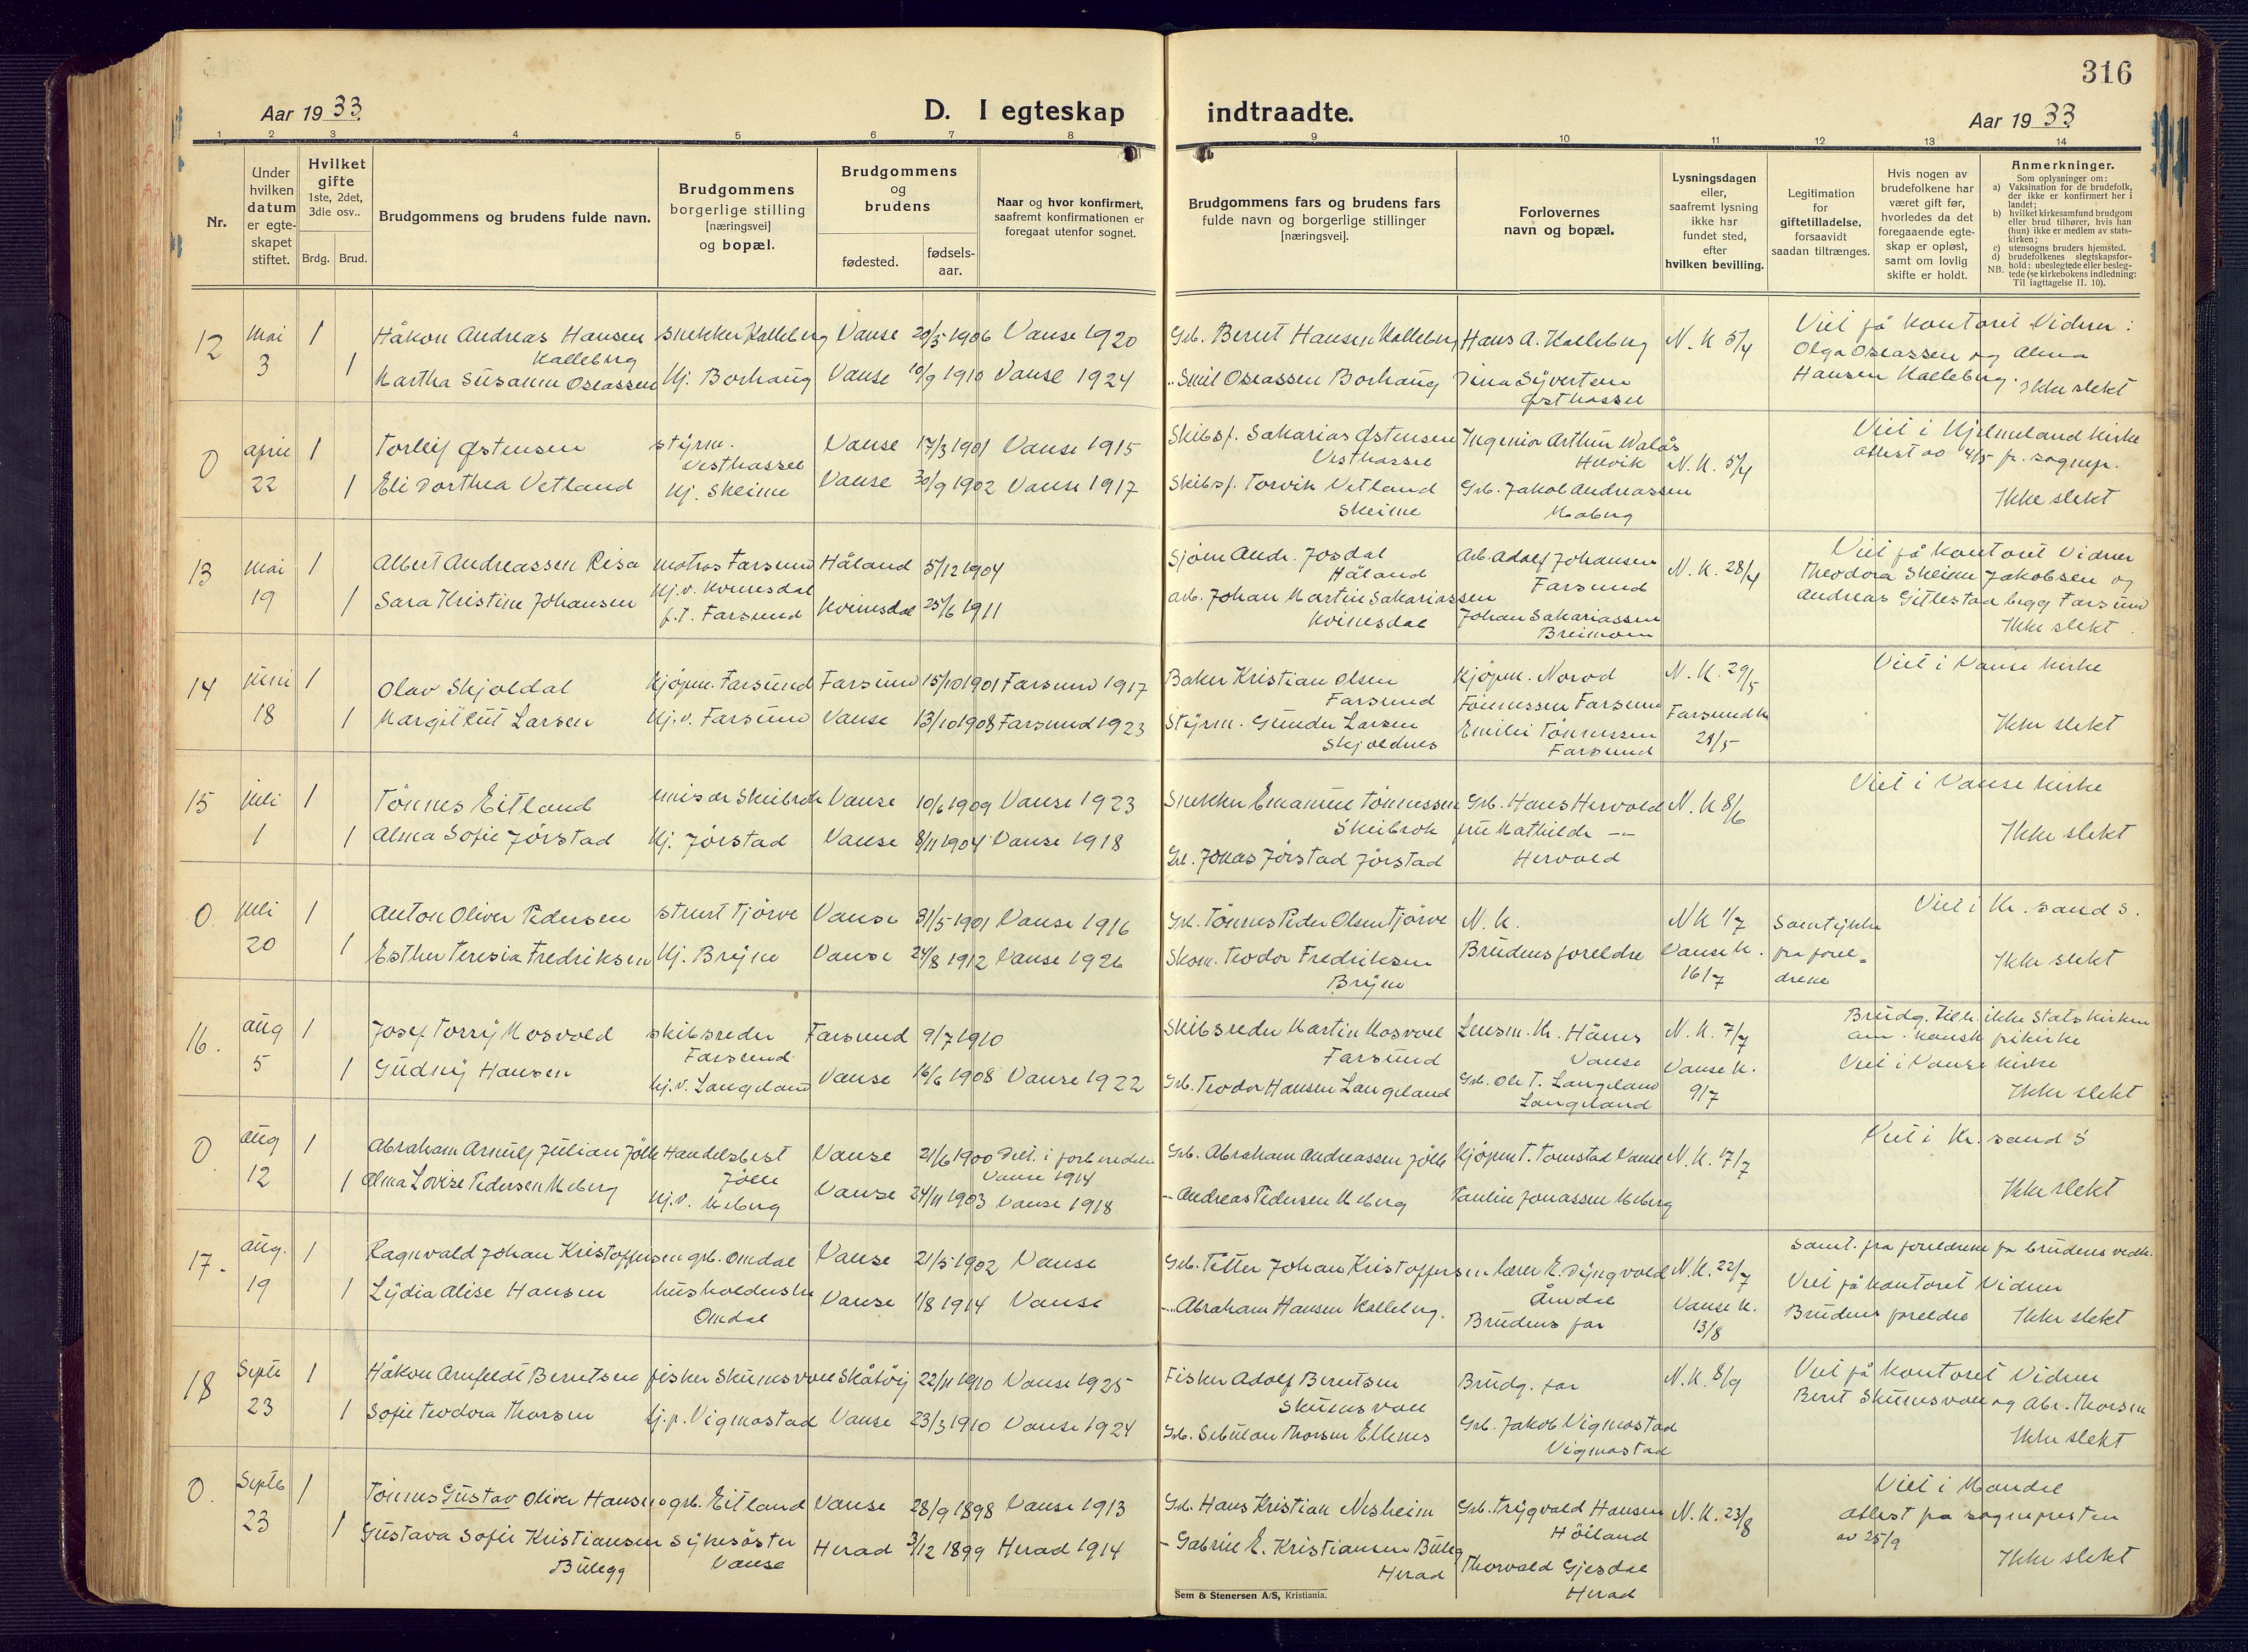 316
Aar 1933.
D. I egteskap indtraadte.
Aar 1933
1 2 3 4 5 6 7 8 9 10 11 12 13 14
Nr.
Under
hvilken
datum
er egte-
skapet
stiftet.
Hvilket
gifte
1ste, 2det,
3die osv..
Brdg. Brud.
Brudgommens og brudens fulde navn.
Brudgommens
borgerlige stilling
[næringsvei]
og bopæl.
Brudgommens
og
brudens
fødested.
fødsels-
aar.
Naar og hvor konfirmert,
saafremt konfirmationen er
foregaat utenfor sognet.
Brudgommens fars og brudens fars
fulde navn og borgerlige stillinger
[næringsvei].
Forlovernes
navn og bopæl.
Lysningsdagen
eller,
saafremt lysning
ikke har
fundet sted,
efter
hvilken bevilling.
Legitimation
for
giftetilladelse,
forsaavidt
saadan tiltrænges.
Hvis nogen av
brudefolkene har
været gift før,
hvorledes da det
foregaaende egte-
skap er opløst,
samt om lovlig
skifte er holdt.
Anmerkninger.
Som oplysninger om:
a) Vaksination for de brudefolk,
der ikke er konfirmert her i
landet;
b) hvilket kirkesamfund brudgom
eller brud tilhører, hvis han
(hun) ikke er medlem av stats-
kirken;
c) utensogns bruders hjemsted.
d) brudefolkenes slegtskapsfor-
hold: ubeslegtede eller besleg-
NB. tede (se kirkebokens indledning:
Til iagttagelse II. 10).
12 mai 3 1 Håkon Andreas Hansen Kalleberg snekker Kalleberg Vanse 20/5 1906 Vanse 1920 Grb. Bernt Hansen Kalleberg Hans A. Kalleberg N. K 5/4 Viet på kontoret Vidner:
Olga Oseassen og Alma
Hansen Kalleberg. Ikke slekt
1 Martha Susanne Oseassen Hj. Borhaug Vanse 10/9 1910 Vanse 1924 " Emil Oseassen Borhaug Tina Syvertsen Østhassel
0 april 22 1 Torleif Østensen styrm. Vesthassel Vanse 17/3 1901 Vanse 1915 Skibsf. Sakarias Østensen Vesthassel Ingeniør Arthur Walås N. K. 5/4 Viet i Hjelmeland kirke
attest av 4/5 fr. sognepr.
1 Eli Dorthea Vetland Hj. Skeime Vanse 30/9 1902 Vanse 1917 Skibsf. Torvik Vetland Skeime Grb. Jakob Andreassen Maberg Ikke slekt
13 mai 19 1 Albert Andreassen Risa matros Farsund Håland 5/12 1904 Sjøm Andr. Josdal Håland Arb. Adolf Johansen Farsund N. K. 28/4 Viet på kontoret Vidner
Theodora Skeime Jakobsen og
Andreas Gitlestad begg Farsund
Ikke slekt.
1 Sara Kristine Johansen Hj. v. Kvinesdal f.t. Farsund Kvinesdal 25/6 1911 arb. Johan Martin Sakariassen Kvinesdal Johan Sakariassen Breimoen
14 juni 18 1 Olav Skjoldal kjøpm. Farsund Farsund 15/10 1901 Farsund 1917 Baker Kristian Olsen Farsund Kjøpm. Norvod Tønnessen Farsund N. K. 29/5 Viet i Vanse kirke
1 Margit Rut Larsen Hj. v. Farsund Vanse 13/10 1908 Farsund 1923 Styrm. Gunder Larsen Skjoldnes Emilie Tønnessen Farsund Farsund k 28/5 Ikke slekt
15 juli 1 1 Tønnes Eitland Skeibrok Vanse 10/6 1909 Vanse 1923 Snekker Emanuel Tønnessen Skeibrok Grb. Hans Hervold N. K 8/6 Viet i Vanse kirke
1 Alma Sofie Jørstad Hj. Jørstad Vanse 8/11 1904 Vanse 1918 Grb. Jonas Jørstad Jørstad fru Mathilde —— Hervold Ikke slekt
0 juli 20 1 Anton Oliver Pedersen stuert Tjørve Vanse 31/5 1901 Vanse 1916 Grb. Tønnes Peder Olsen Tjørve N. K. NK 1/7 Samtykke Viet i Kr. sand S.
1 Esther Teresia Fredriksen Hj. Bryne Vanse 24/8 1912 Vanse 1926 Skom. Teodor Fredriksen Bryne Brudens foreldre Vanse K. 16/7 fra forel-
drene Ikke slekt
16. aug 5 1 Josef Torry Mosvold skibsreder Farsund Farsund 9/7 1910 Skibsreder Martin Mosvold Farsund Lensm. Kr. Hånes Vanse N. K. 7/7 Brudg. tilh. ikke Statskirken
am. kansk frikirke
1 Gudny Hansen Hj. v. Langeland Vanse 16/6 1908 Vanse 1922 Grb. Teodor Hansen Langeland Grb. Ole T. Langeland Langeland Vanse K. 9/7 Viet i Vanse kirke
Ikke slekt
0 aug 12 1 Abraham Arnulf Julian Jølle Handelsbest Jølle Vanse 21/6 1900 Delt. i forberedelse Vanse 1914 Grb. Abraham Andreassen Jølle Kjøpm T. Tomstad Vanse N. K. 17/7 Viet i Kr. sand S
1 Alma Lovise Pedersen Meberg Hj. v. Meberg Vanse 24/11 1903 Vanse 1918 — Andreas Pedersen Meberg Pauline Jonassen Meberg Ikke slekt
17. aug. 19 1 Ragnvald Johan Kristoffersen grb. Omdal Vanse 21/5 1902 Vanse Grb. Petter Johan Kristoffersen lærer E. Dyngvold Åmdal N. K. 22/7 Samt. fra foreldrene for brudens vedk.
1 Lydia Alise Hansen husholderske Omdal Vanse 1/8 1914 Vanse —"— Abraham Hansen Kalleberg. Brudens far Vanse K. 13/8 Viet på kontoret Vidner
Brudens foreldre Ikke slekt
18 Septe 23 1 Håkon Arnfeldt Berntsen fisker Skumsvoll Skåtøy 22/11 1910 Vanse 1925 Fisker Adolf Berntsen Skumsvoll Brudg. far N. K. 8/9 Viet på kontoret Vidner
Bernt Skumsvoll og Abr. Thorsen
1 Sofie Teodora Thorsen hj. p. Vigmostad Vanse 23/3 1910 Vanse 1924 Grb. Sebulon Thorsen Ellenes Grb. Jakob Vigmostad Vigmostad Ikke slekt
0. Septe 23 1 Tønnes Gustav Oliver Hansen grb. Eitland Vanse 28/9 1898 Vanse 1913 Grb. Hans Kristian Nesheim Grb. Trygvald Hansen Høiland N. K. 23/8 Viet i Mandal
attest fra sognepresten
av 25/9
1 Gustava Sofie Kristiansen Bulegg Sykesøster Vanse Herad 3/12 1899 Herad 1914 — Gabriel E. Kristiansen Buleg Herad Thorvald Gjesdal Herad Ikke slekt
Sem & Stenersen A/S, Kristiania.